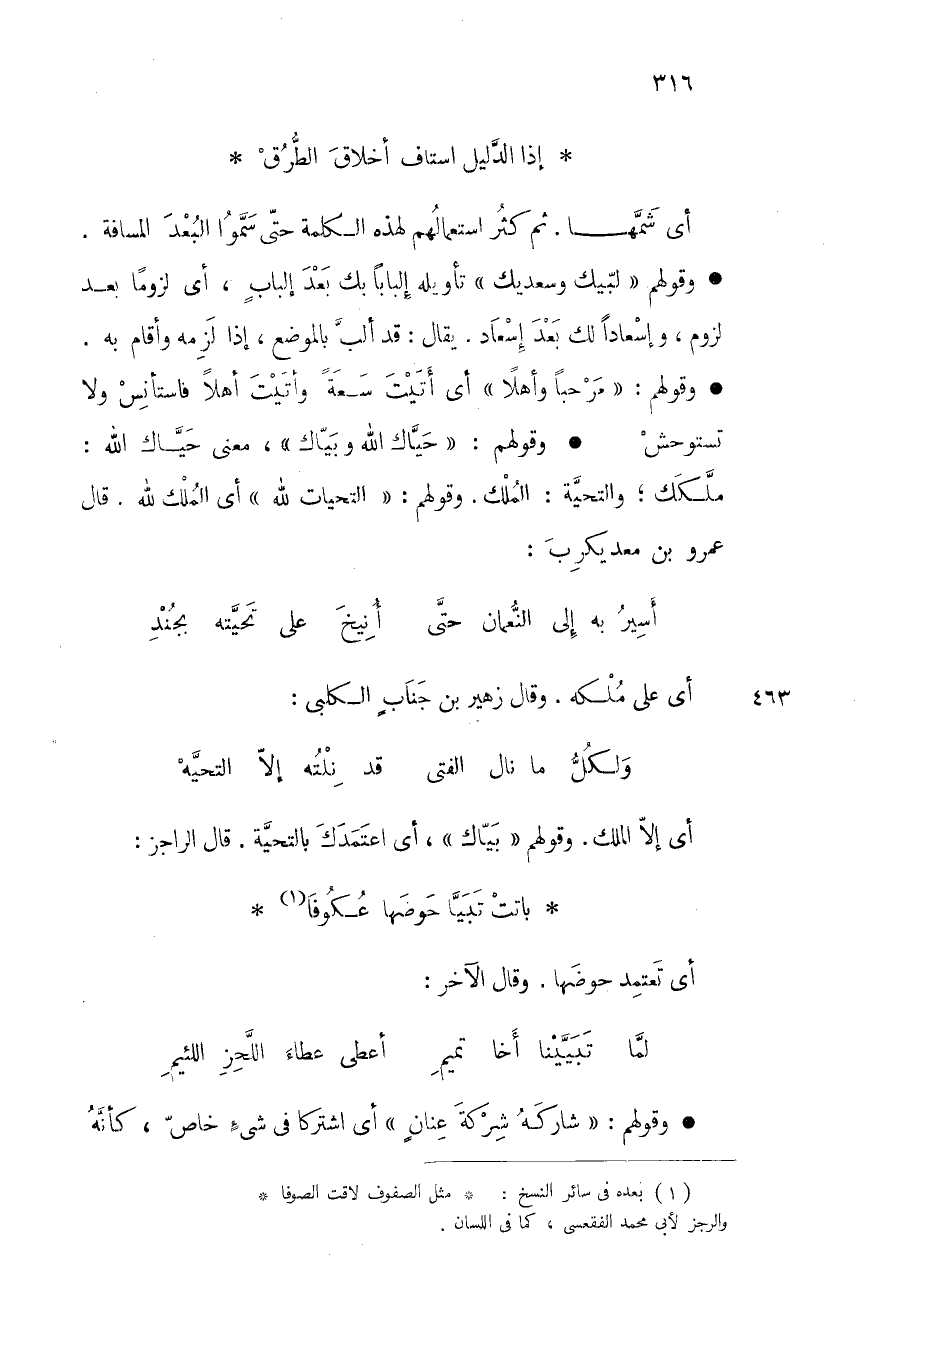 ٣١٦
* إذا الدَّليل استاف أخلاقَ الطُّرُقْ *
أى شَمَّهـا . ثم كثُر استعمالُهم لهذه الـكلمة حتّى سَمَّوُا البُعْدَ المسافة .
● وقولهم « لبّيك وسعديك » تأويله إلباباً بك بَعْدَ إلبابٍ ، أى لزومًا بعـد
لزوم ، وإسْعاداً لك بَعْدَ إسْعَاد . يقال : قد ألبَّ بالموضع ، إذا لَزِمه وأقام به .
● وقولهم : « مَرْحباً وأهلًا » أى أَتَيْتَ سَـعةً وأتَيْتَ أهلاً فاستأنِسْ ولا
تستوحشْ ● وقولهم : « حَيَّاك الله وبَيّاك » ، معنى حَيَّـاك الله :
ملَّـكَك ؛ والتحيَّة : المُلْك . وقولهم : « التحيات لله » أى المُلْك لله . قال
عمرو بن معديكرِبَ :
أَسِيرُ به إلى النُّعمان حتَّى أُنِيخَ على تَحيَّته بجُنْدِ
أى على مُلْـكه . وقال زهير بن جَنَابٍ الـكلبى : ٤٦٣
وَلـكُلُّ ما نال الفتى قد نِلْتُه إلاّ التحيَّهْ
أى إلاّ الملك . وقولهم « بَيّاك » ، أى اعتَمَدَكَ بالتحيَّة . قال الراجز :
* باتتْ تَبَيَّا حَوضَها عُـكُوفَا(١) *
أى تَعتمِد حوضَها . وقال الآخر :
لمَّا تَبَيَّيْنا أَخا تميمِ أعطى عطاءَ اللَّحِزِ اللئيمِ
● وقولهم : « شاركَـهُ شِرْكةَ عِنانٍ » أى اشتركا فى شىءٍ خاصّ ، كأنَّهُ
(١) بعده فى سائر النسخ : * مثل الصفوف لاقت الصوفا *
والرجز لأبى محمد الفقعسى ، كما فى اللسان .